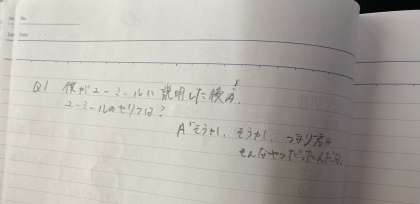 Q1 僕がエーミールに説明した後の、
エーミールのセリフは?
A「そうか、そうか、つまり君は
そんなやつだったんだな。